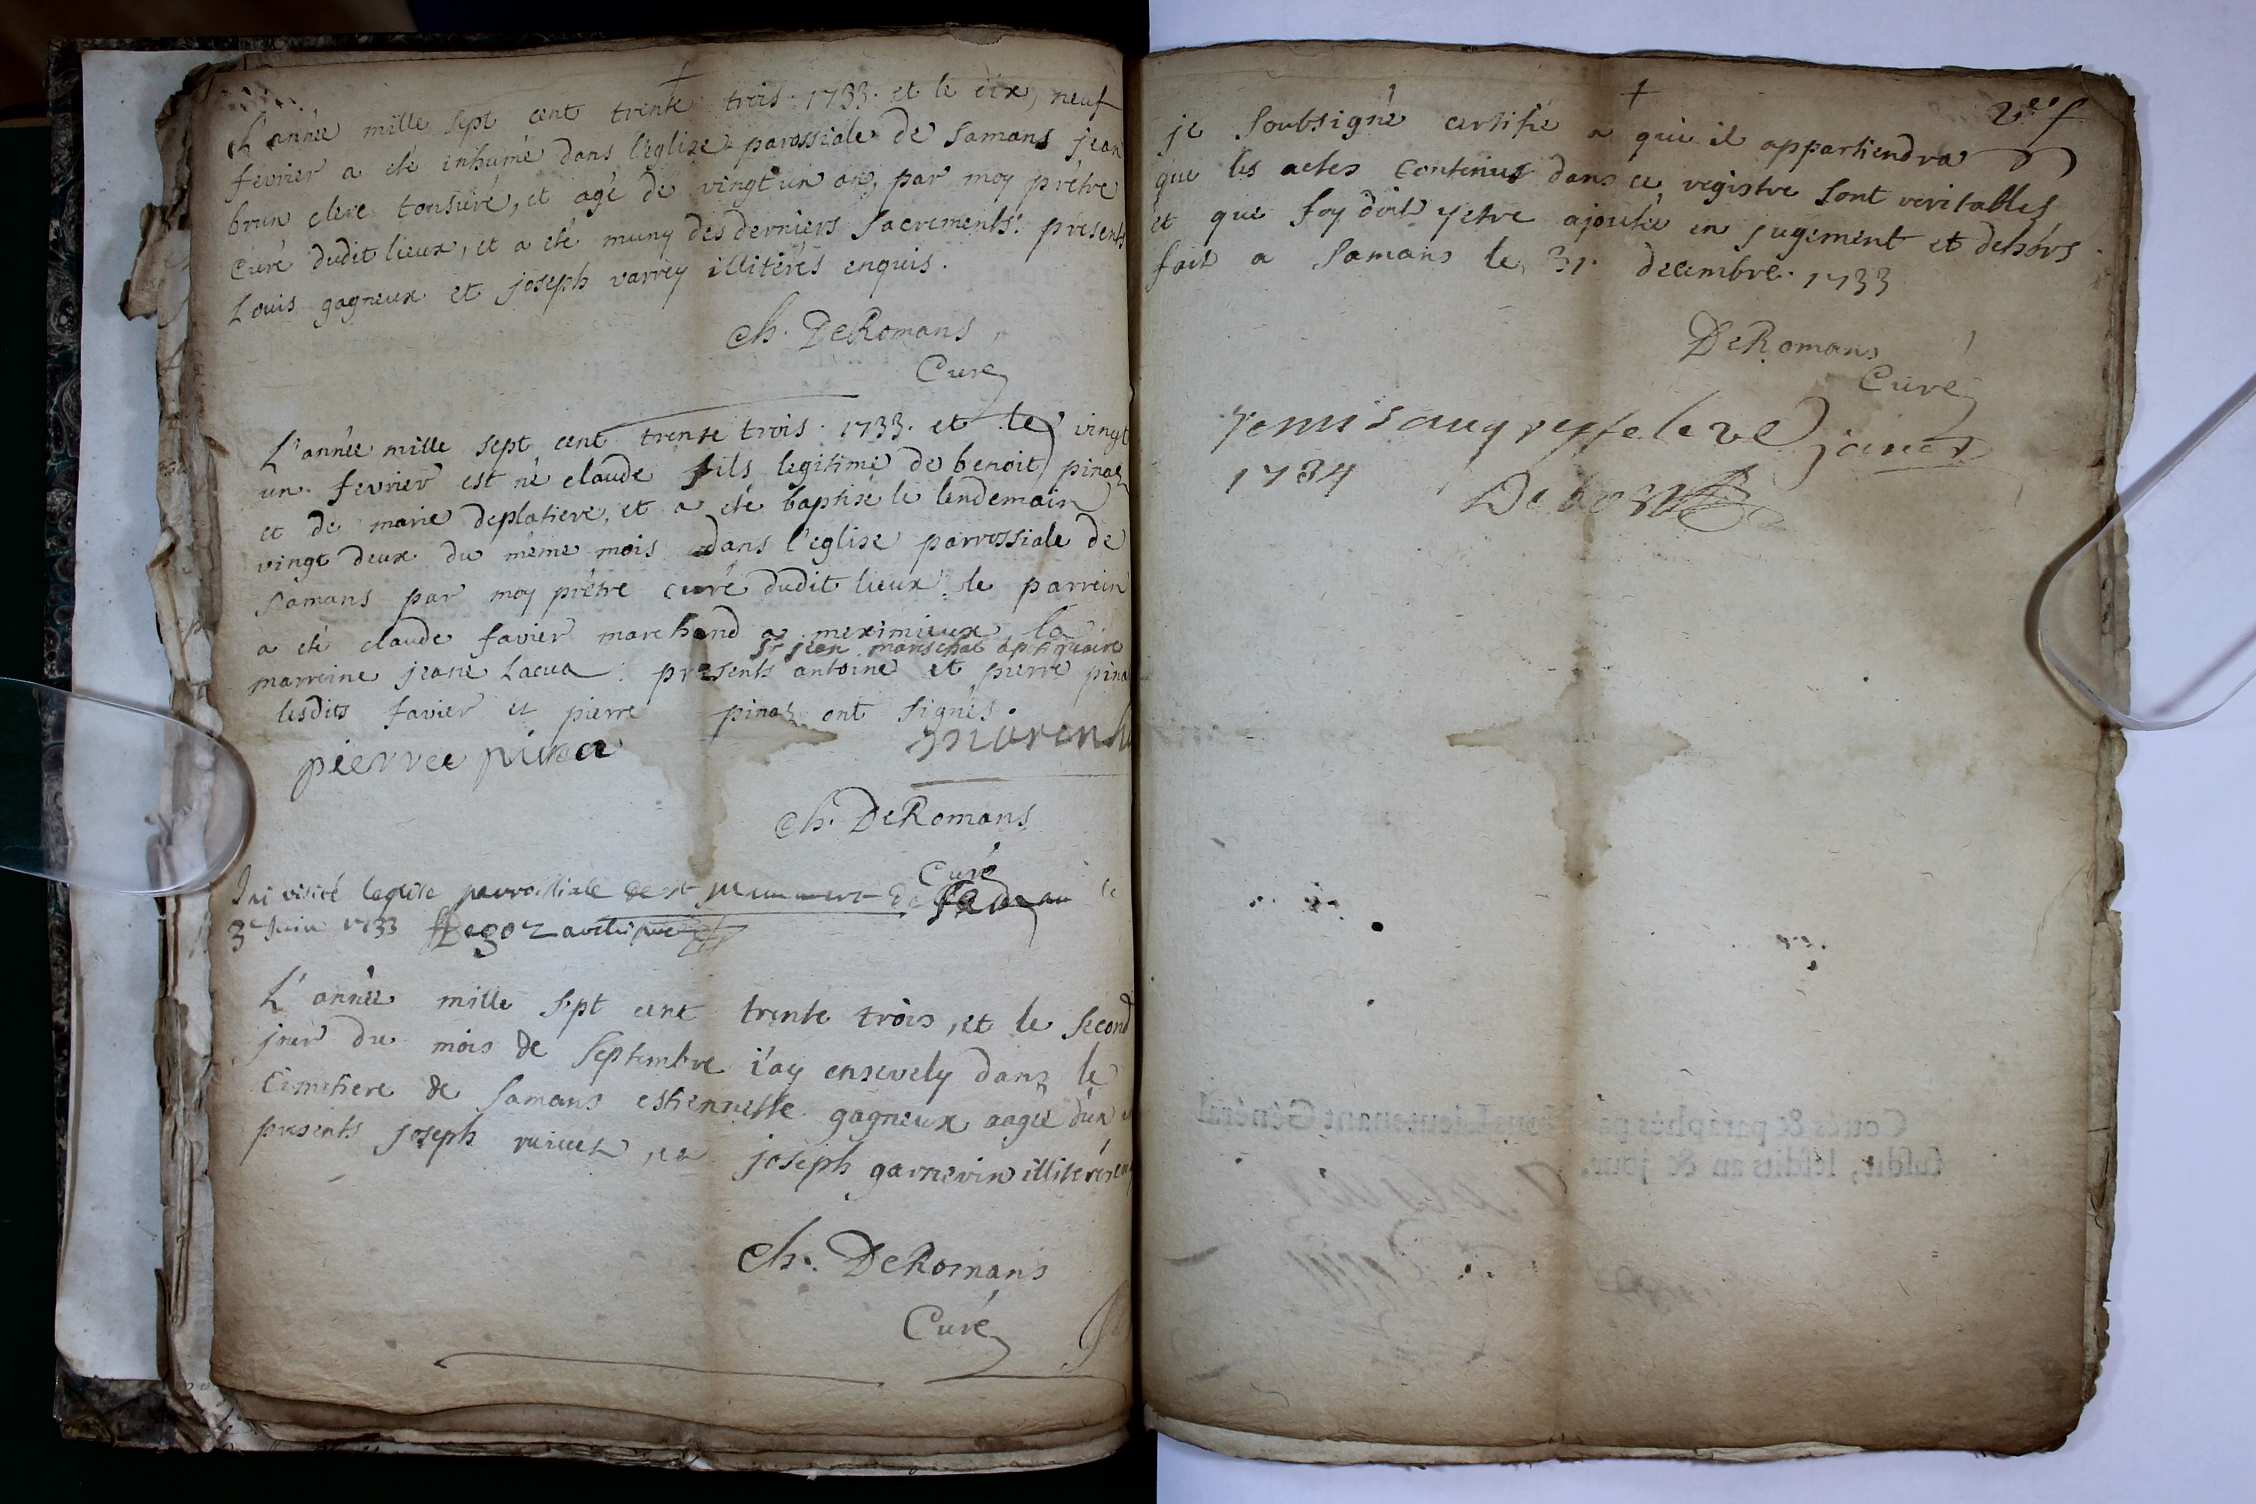 L'année mille sept cent trente trois. 1733. et le dix, neuf
fevrier a eté inhumé dans l'eglise parossiale de Samans jean
brun clerc tonsuré, et agé de vingt un an, par moy prêtre
Curé dudit lieux, et a eté muny des derniers Sacrements. présents
Louis gagneux et joseph varrey illiterés enquis.
Ch. DeRomans
Curé
L'année mille sept cent trente trois. 1733. et le vingt
un fevrier est né claude fils legitime de benoit pinaz
et de marie deplatiere, et a eté baptisé le lendemain
vingt deux du même mois dans l'eglise parrossiale de
Samans par moy prêtre curé dudit lieux. le parrein
a eté claude favier marchand a meximieux la
Sr jean mareschal apotiquaire
marreine jeane Lacua. presents antoine et pierre pinaz
lesdits favier et pierre pinaz ont signés.
pierre pinaz
Ch. DeRomans
Curé
J'ai visité leglise parroissiale de le
3e Juin 1733
L'année mille sept cent trente trois, et le second
jour du mois de Septembre i'ay ensevely dans le
Cimetiere de Samans estiennette gagneux aagée d'un
presents joseph et joseph garnevin illiterés
Ch. DeRomans
Curé
je soubsigné certifie a qui il appartiendra
que les actes contenus dans ce registre sont veritables
et que foy doit y etre ajoutée en jugement et dehors.
fait a Samans le 31. decembre. 1733
DeRomans
Curé
Remis au greffe le 20 janer
1734
Cottés & paraphés par Nous Lieutenant Général
susdit, lesdits an & jour.